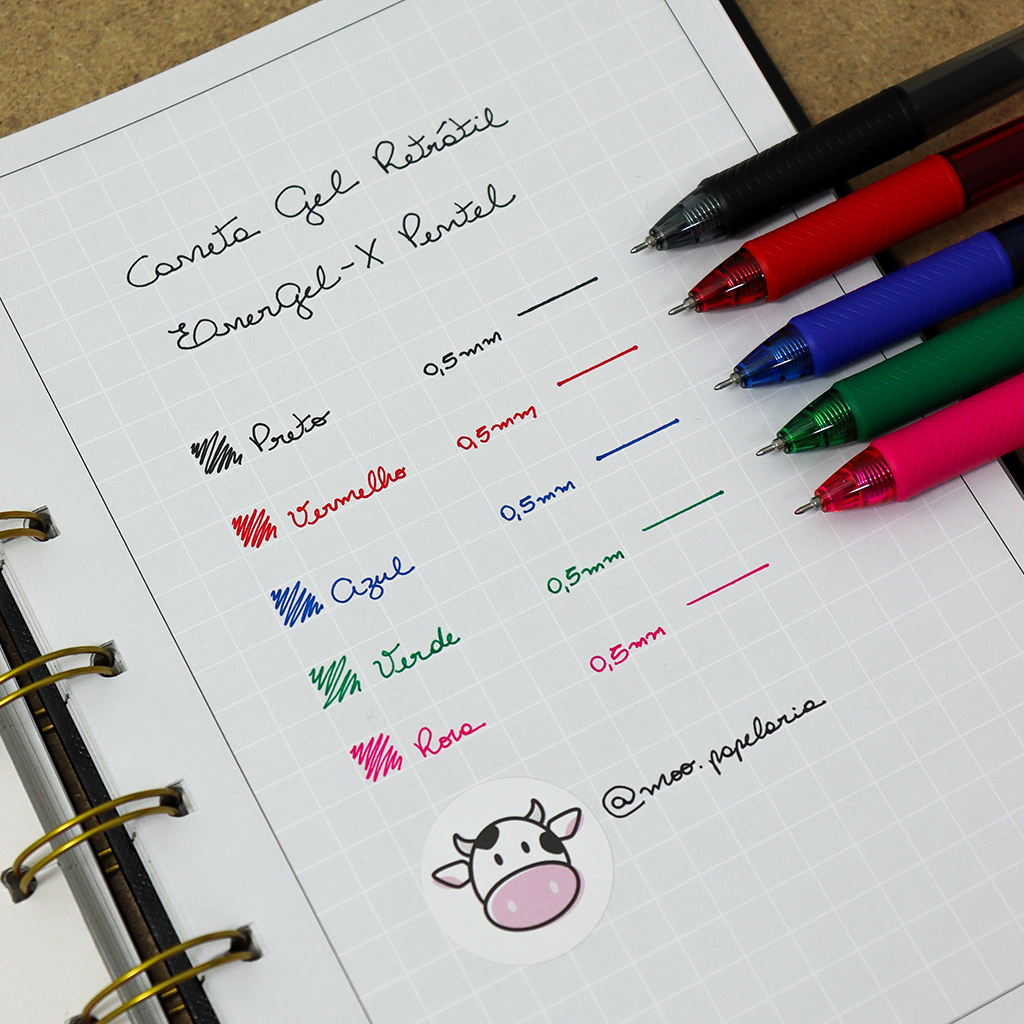 Caneta Gel Retrátil
EnerGel-X Pentel
Preto 0,5mm
Vermelho 0,5mm
Azul 0,5mm
Verde 0,5mm
Rosa 0,5mm
@moo.papelaria